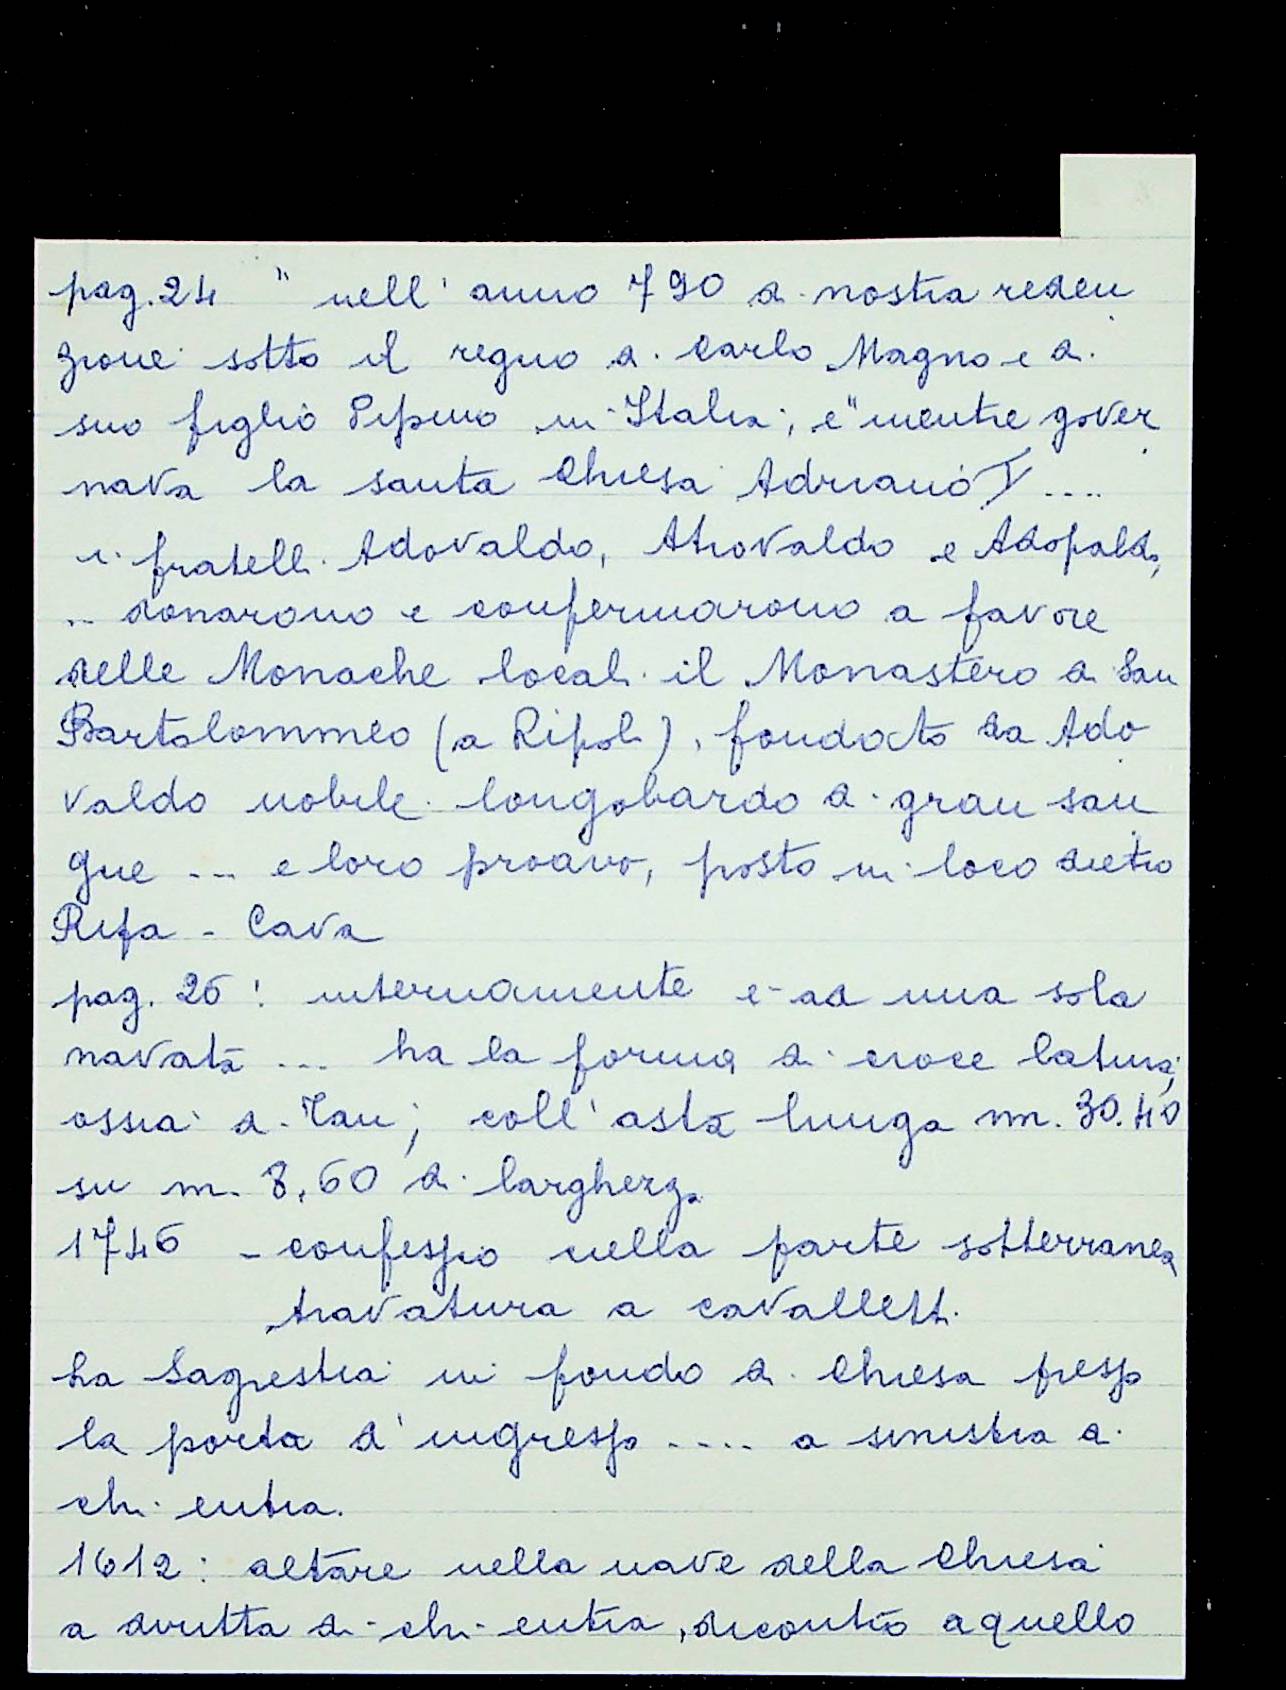 pag. 24 " nell' anno 790 di nostra reden
zione sotto il regno di Carlo Magno e di
suo figlio Pipino in Italia; e" mentre gover
nava la santa Chiesa Adriano I ....
i fratelli Adovaldo, Atrovaldo e Adopaldo,
... donarono e confermarono a favore
delle Monache locali il Monastero di San
Bartolommeo (a Ripoli), fondato da Ado
valdo nobile longobardo di gran san
gue ... e loro proavo, posto in loco dietro
Ripa - Cava
pag. 26: internamente è ad una sola
navata ... ha la forma di croce latina,
ossia di Tau; coll' asta lunga m. 30.40
su m. 8,60 di largherz.
1746 - confessio nella parte sotterranea
travatura a cavalletti.
ha Sagrestia in fondo di Chiesa presso
la porta d' ingresso .... a sinistra di
chi entra.
1612: altare nella nave della Chiesa
a diritta di chi entra, dicontro a quello